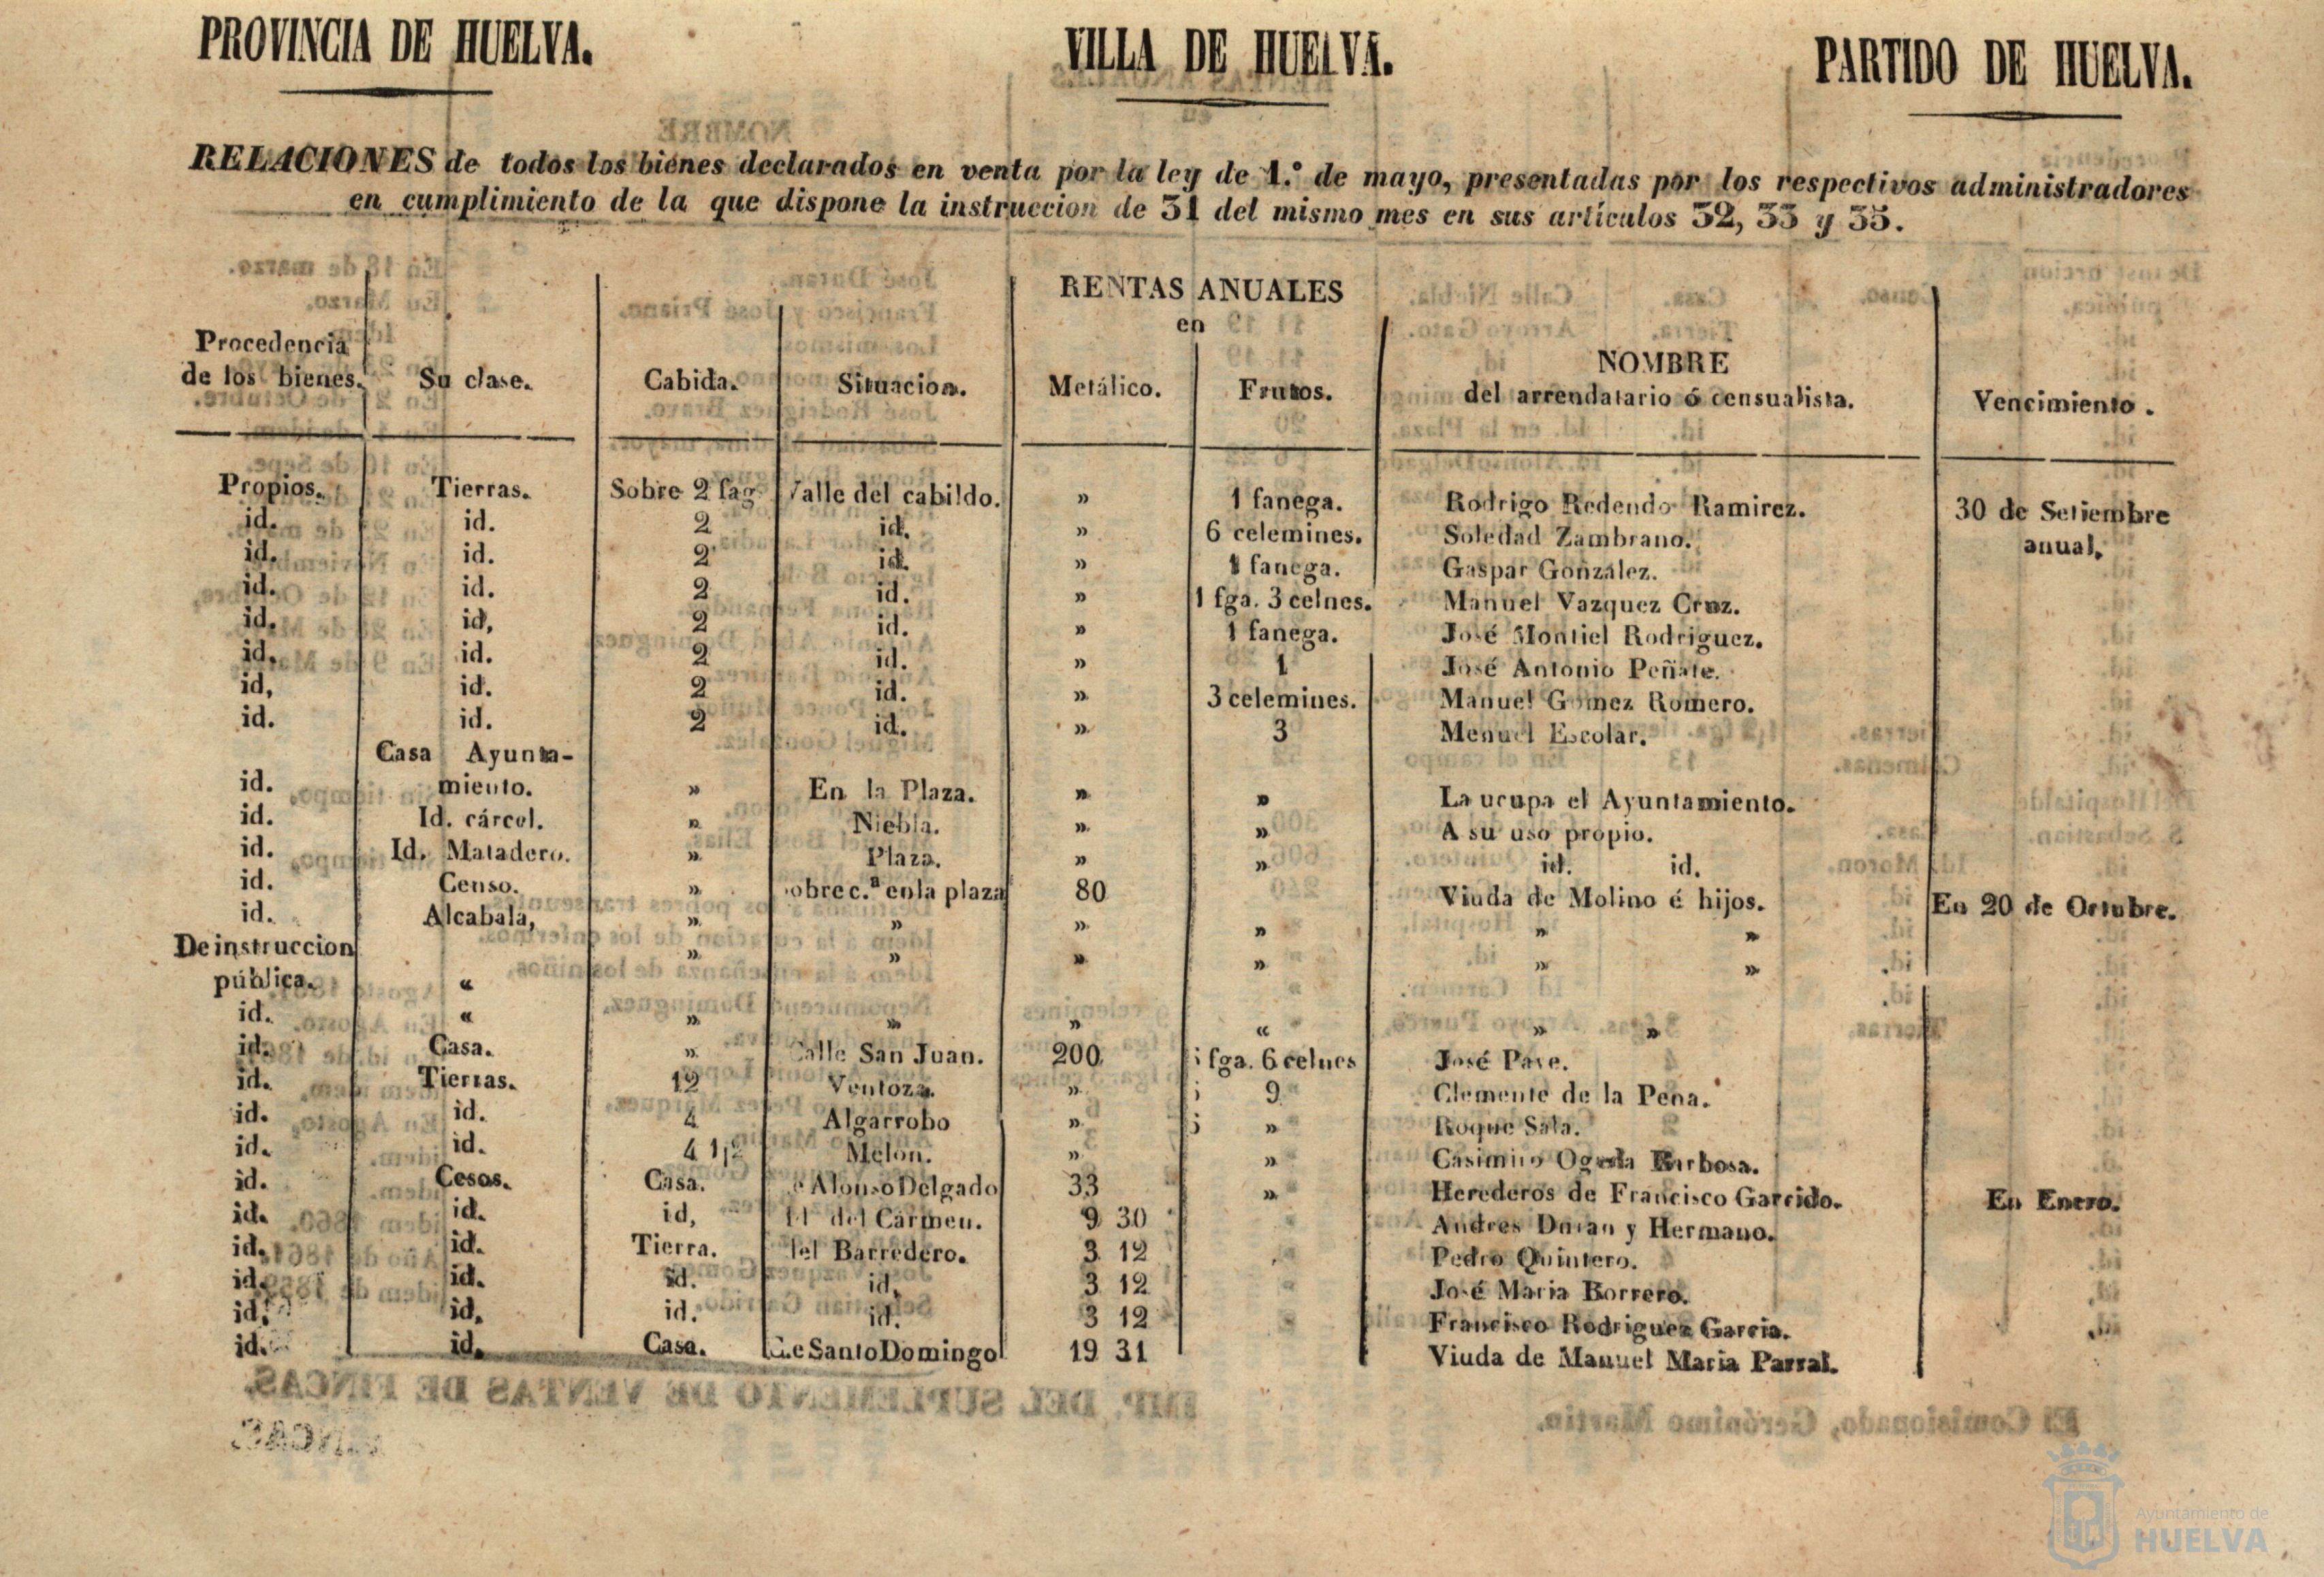 PROVINCIA DE HUELVA.
VILLA DE HUELVA.
PARTIDO DE HUELVA.
RELACIONES de todos los bienes declarados en venta por la ley de 1.º de mayo, presentadas por los respectivos administradores
en cumplimiento de la que dispone la instruccion de 31 del mismo mes en sus artículos 32, 33 y 35.
RENTAS ANUALES
en
Procedencia
de los bienes. Su clase. Cabida. Situacion. Metálico. Frutos. NOMBRE
del arrendatario ó censualista. Vencimiento.
Propios. Tierras. Sobre 2 fag Valle del cabildo. » 1 fanega. Rodrigo Redendo Ramirez. 30 de Setiembre
id. id. 2 id. » 6 celemines. Soledad Zambrano. anual,
id. id. 2 id. » 1 fanega. Gaspar Gonzalez.
id. id. 2 id. » 1 fga. 3 celnes. Manuel Vazquez Cruz.
id. id, 2 id. » 1 fanega. José Montiel Rodriguez.
id. id. 2 id. » 1 José Antonio Peñate.
id, id. 2 id. » 3 celemines. Manuel Gomez Romero.
id. id. 2 id. » 3 Menuel Escolar.
Casa Ayunta-
id. miento. » En la Plaza. » » La ucupa el Ayuntamiento.
id. Id. cárcel. » Niebla. » » A su uso propio.
id. Id. Matadero. » Plaza. » » id. id.
id. Censo. » obre c.ª en la plaza 80 Viuda de Molino é hijos. En 20 de Octubre.
id. Alcabala, » » » » » »
De instruccion » » » » » »
pública. «
id. « » » » « » »
id. Casa. » Calle San Juan. 200 fga. 6 celnes José Pave.
id. Tierras. 12 Ventoza. » 9 Clemente de la Pena.
id. id. 4 Algarrobo » » Roque Sala.
id. id. 4 1|2 Melon. » » Casimiro Barbosa.
id. Cesos. Casa. e Alonso Delgado 33 » Herederos de Francisco Garrido. En Enero.
id. id. id, Id del Cármen. 9 30 Andres Duran y Hermano.
id. id. Tierra. del Barredero. 3 12 Pedro Quintero.
id. id. id. id, 3 12 José Maria Borrero.
id. id, id. id. 3 12 Francisco Rodriguez Garcia.
id. id. Casa. C.e Santo Domingo 19 31 Viuda de Manuel Maria Parral.
Ayuntamiento de
HUELVA